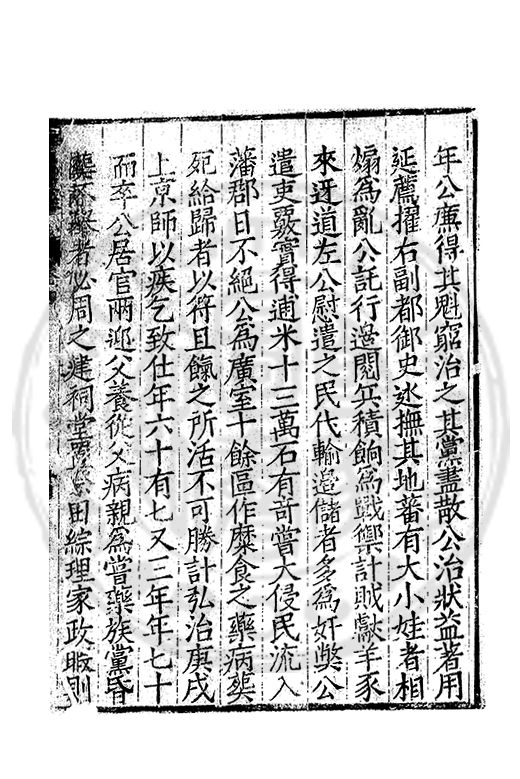 年公廉得其魁窮治之其黨盡散公治狀益著用
延薦擢右副都御史廵撫其地蕃有大小娃者相
煽為亂公託行邊閱兵積餉為戰禦計賊獻羊豕
來迓道左公慰遣之民代輸邊儲者多為奸弊公
遣吏覈實得逋米十三萬石有奇嘗大侵民流入
藩郡日不絕公為廣室十餘區作糜食之藥病𦵏
死給歸者以符且餼之所活不可勝計弘治庚戌
上京師以疾乞致仕年六十有七又三年年七十
而卒公居官兩迎父養從父病親為嘗藥族黨昏
者必周之建祠堂田綜理家政暇則